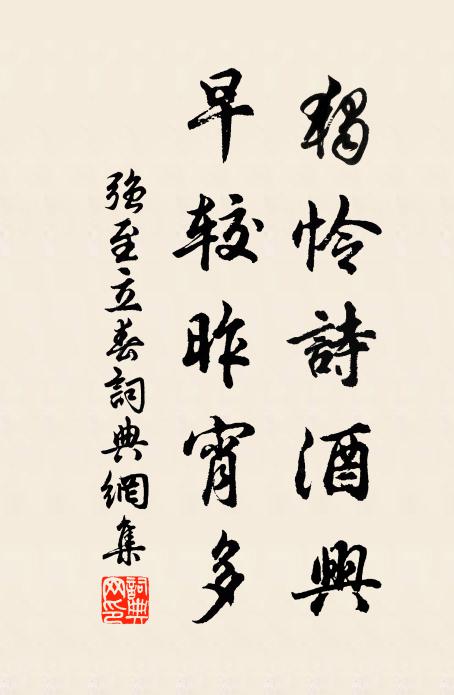 獨怜詩酒興
早较昨宵多
強至立春詞典網集
詞典網印